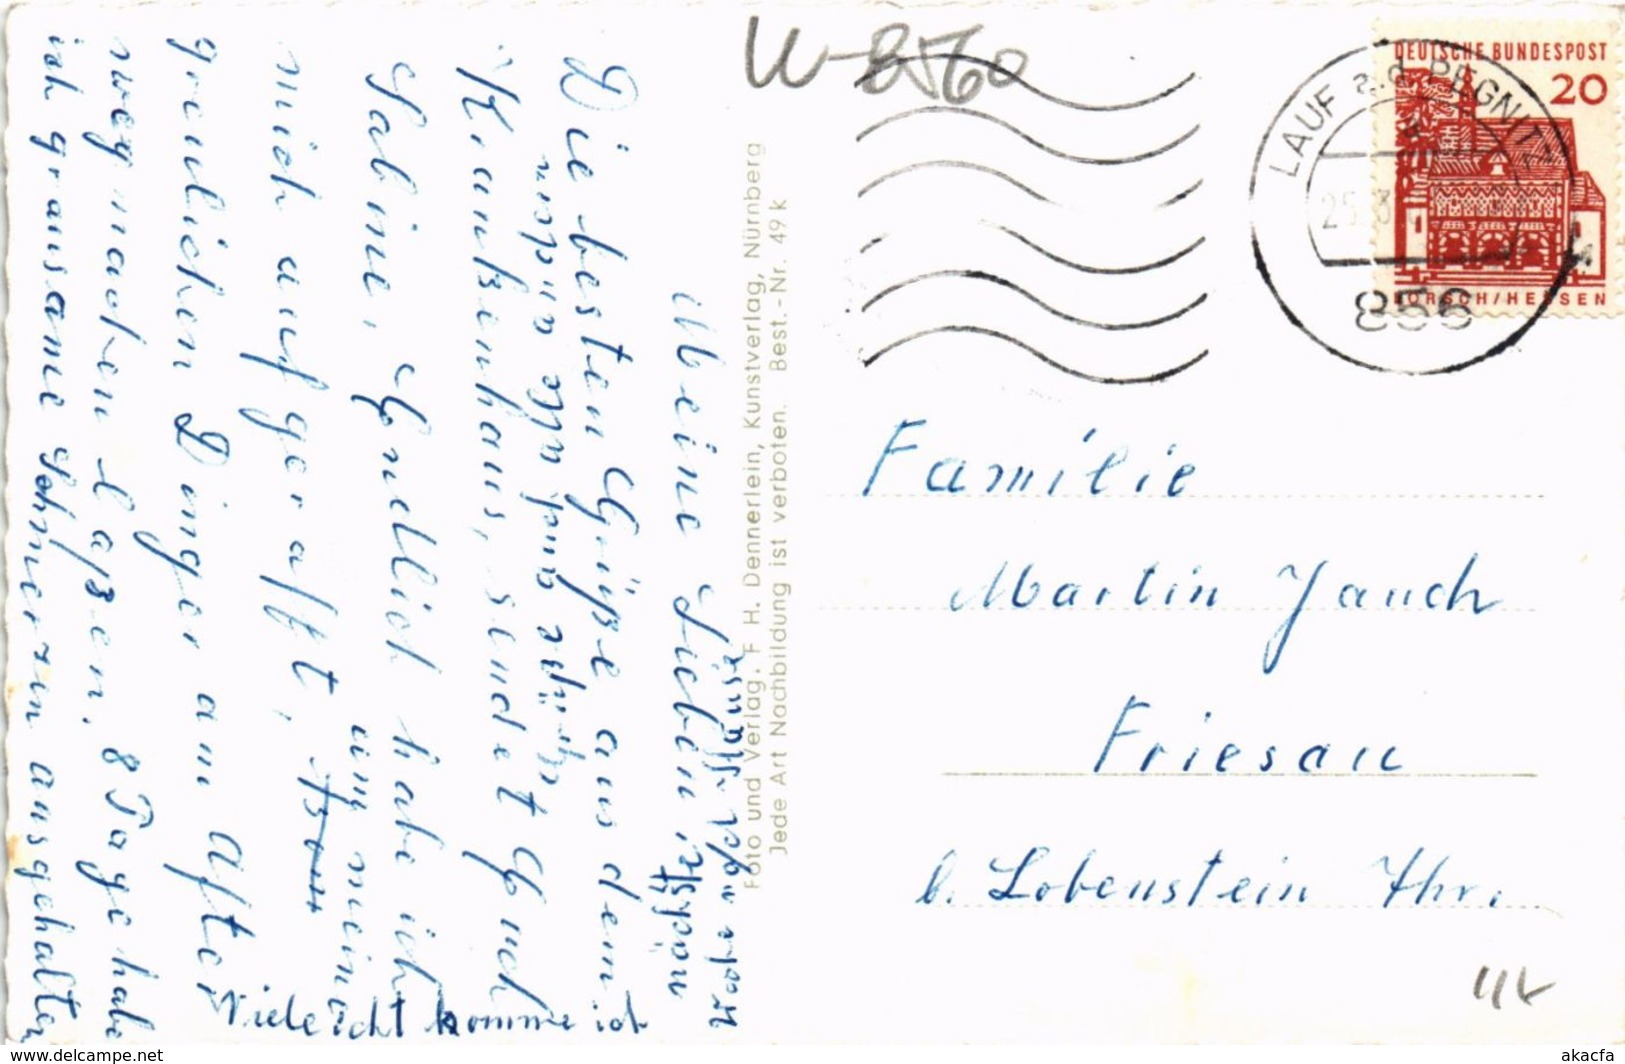 Meine Lieben!
Die besten Grüße aus dem
Krankenhaus, sendet Euch
Sabine, Endlich habe ich
mich aufgerafft, um meine
greulichen Dinger am After
wegmachen laßen. 8 Tage habe
ich grausame Schmerzen ausgehalten
Vieleicht komme ich
nächste
Woche nach Hause
Grüße und alle
Foto und Verlag. F. H. Dennerlein, Kunstverlag, Nürnberg
Jede Art Nachbildung ist verboten. Best.-Nr. 49 K
W-8560
DEUTSCHE BUNDESPOST
20
LORSCH/HESSEN
LAUF a.d. PEGNITZ
856
Familie
Martin Jauch
Friesau
b. Lobenstein Thr.
www.delcampe.net
akacfa